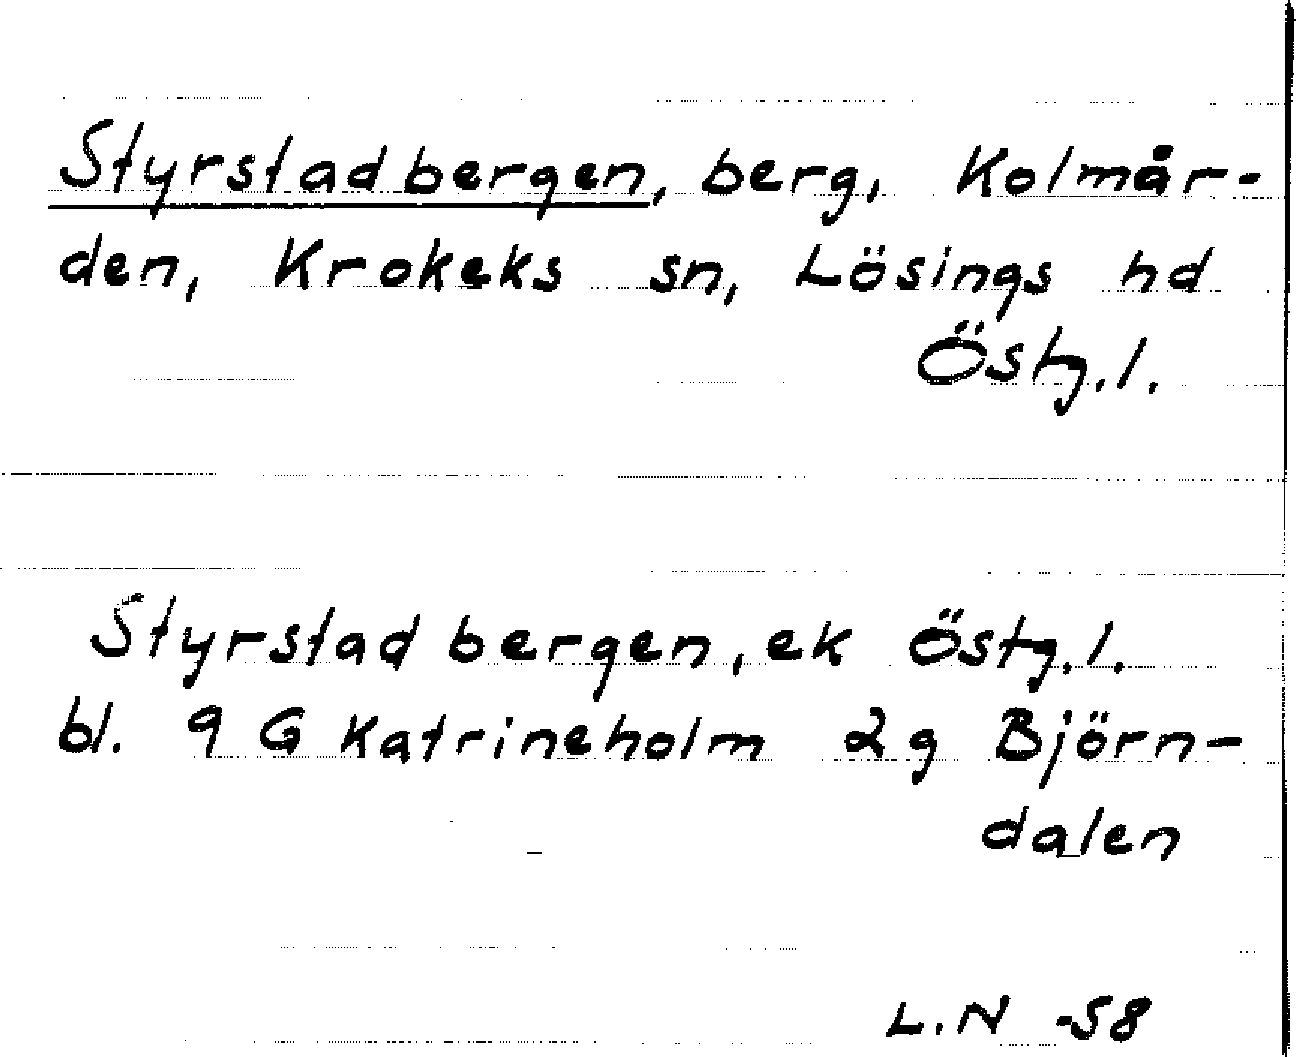 Styrstadbergen, berg, Kolmår-
den, Krokeks sn, Lösings hd
Östg.l.
Styrstadbergen, ek Östg.l.
bl. 9 G Katrineholm 2g Björn-
dalen
L.N -58